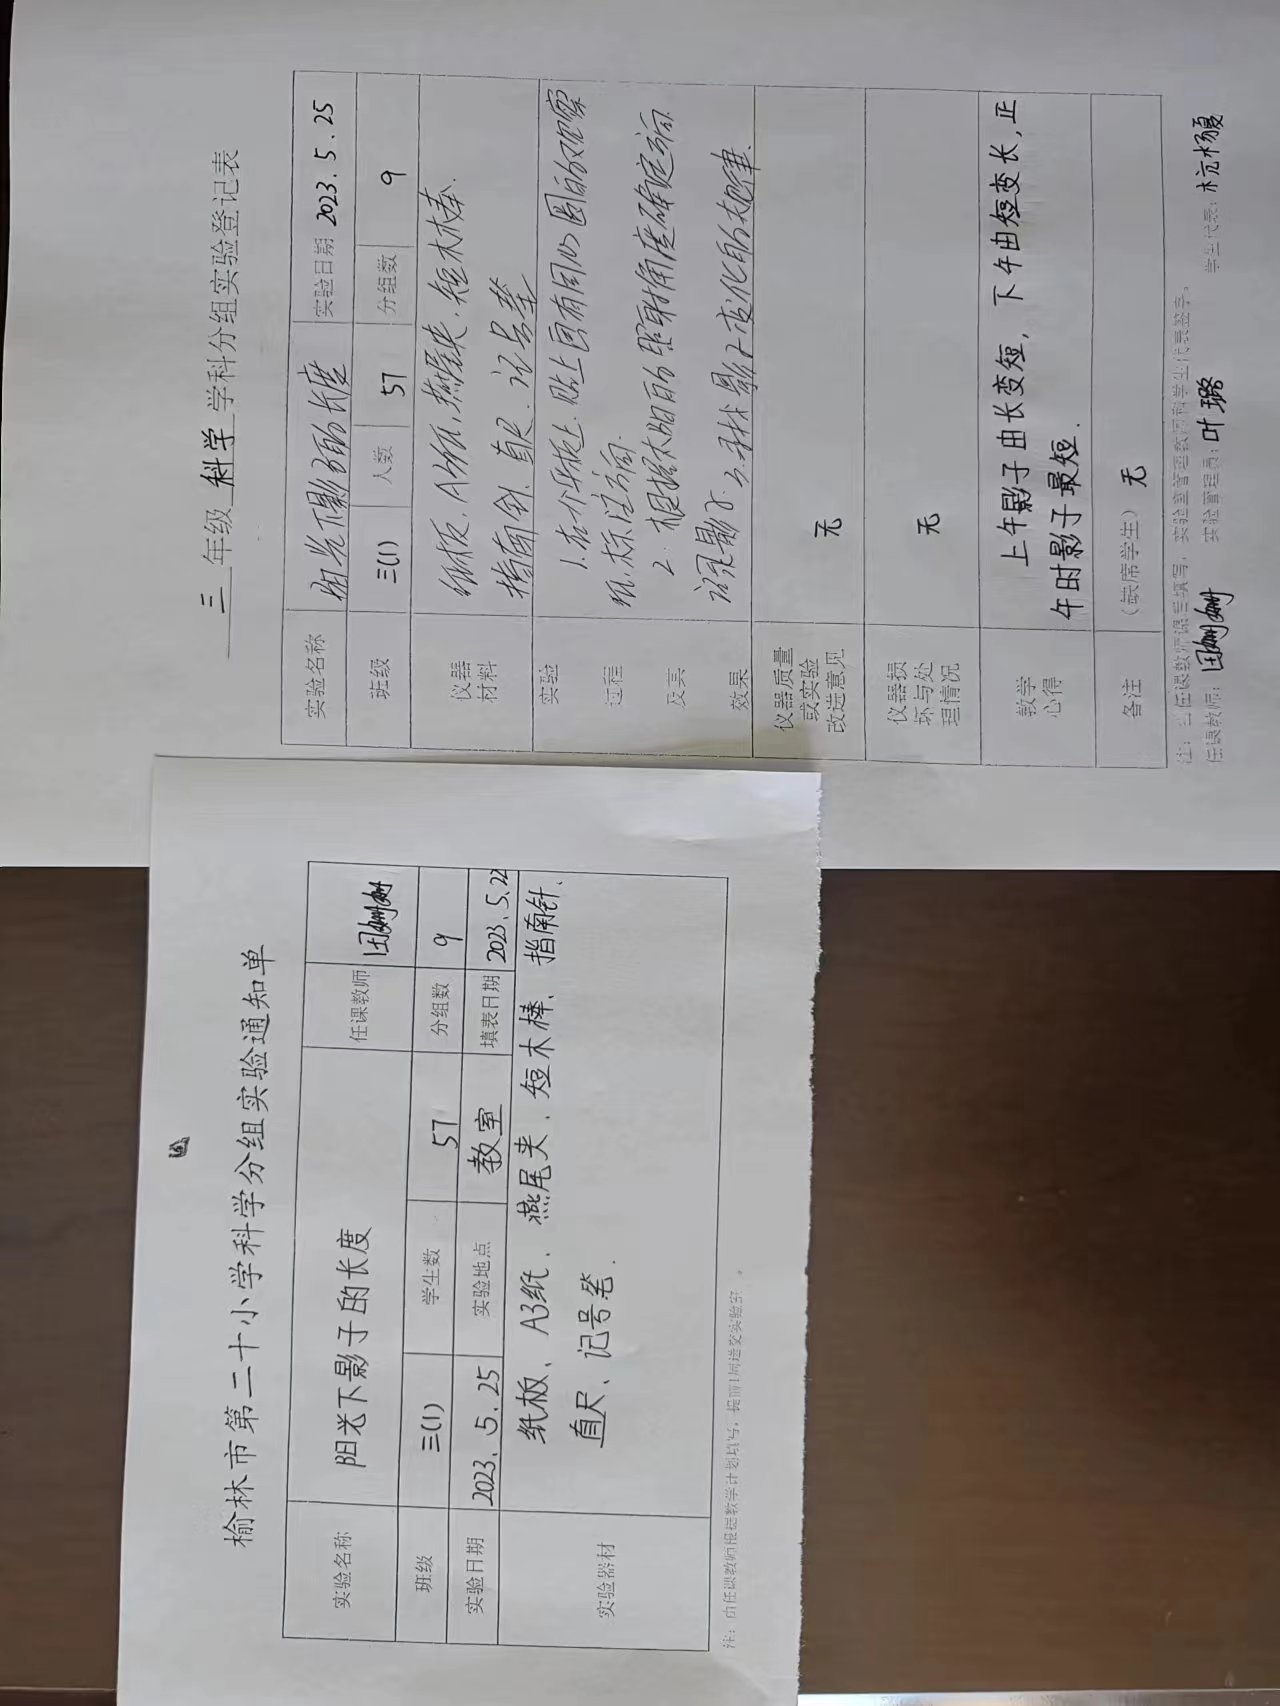 三 年级 科学 学科分组实验登记表
实验名称 阳光下影子的长度 实验日期 2023.5.25
班级 三(1) 人数 57 分组数 9
仪器材料 纸板、A3纸、燕尾夹、短木棒、
指南针、直尺、记号笔
实验过程及其效果 1.在小纸板上贴上画有同心圆的白
纸,标注方向.
2.根据太阳的照射角度确定方向
记录影子.3.寻找影子变化的规律.
仪器质量或实验改进意见 无
仪器损坏与处理情况 无
教学心得 上午影子由长变短,下午由短变长,正
午时影子最短.
备注 (缺席学生) 无
注:由任课教师课后填写,实验室管理教师和学生代表签字。
任课教师: 实验管理员:叶璐 学生代表:
榆林市第二十小学科学分组实验通知单
实验名称 阳光下影子的长度 任课教师
班级 三(1) 学生数 57 分组数 9
实验日期 2023.5.25 实验地点 教室 填表日期 2023.5.22
实验器材 纸板、A3纸、燕尾夹、短木棒、指南针、
直尺、记号笔.
注:由任课教师根据教学计划填写,提前1周送交实验室。